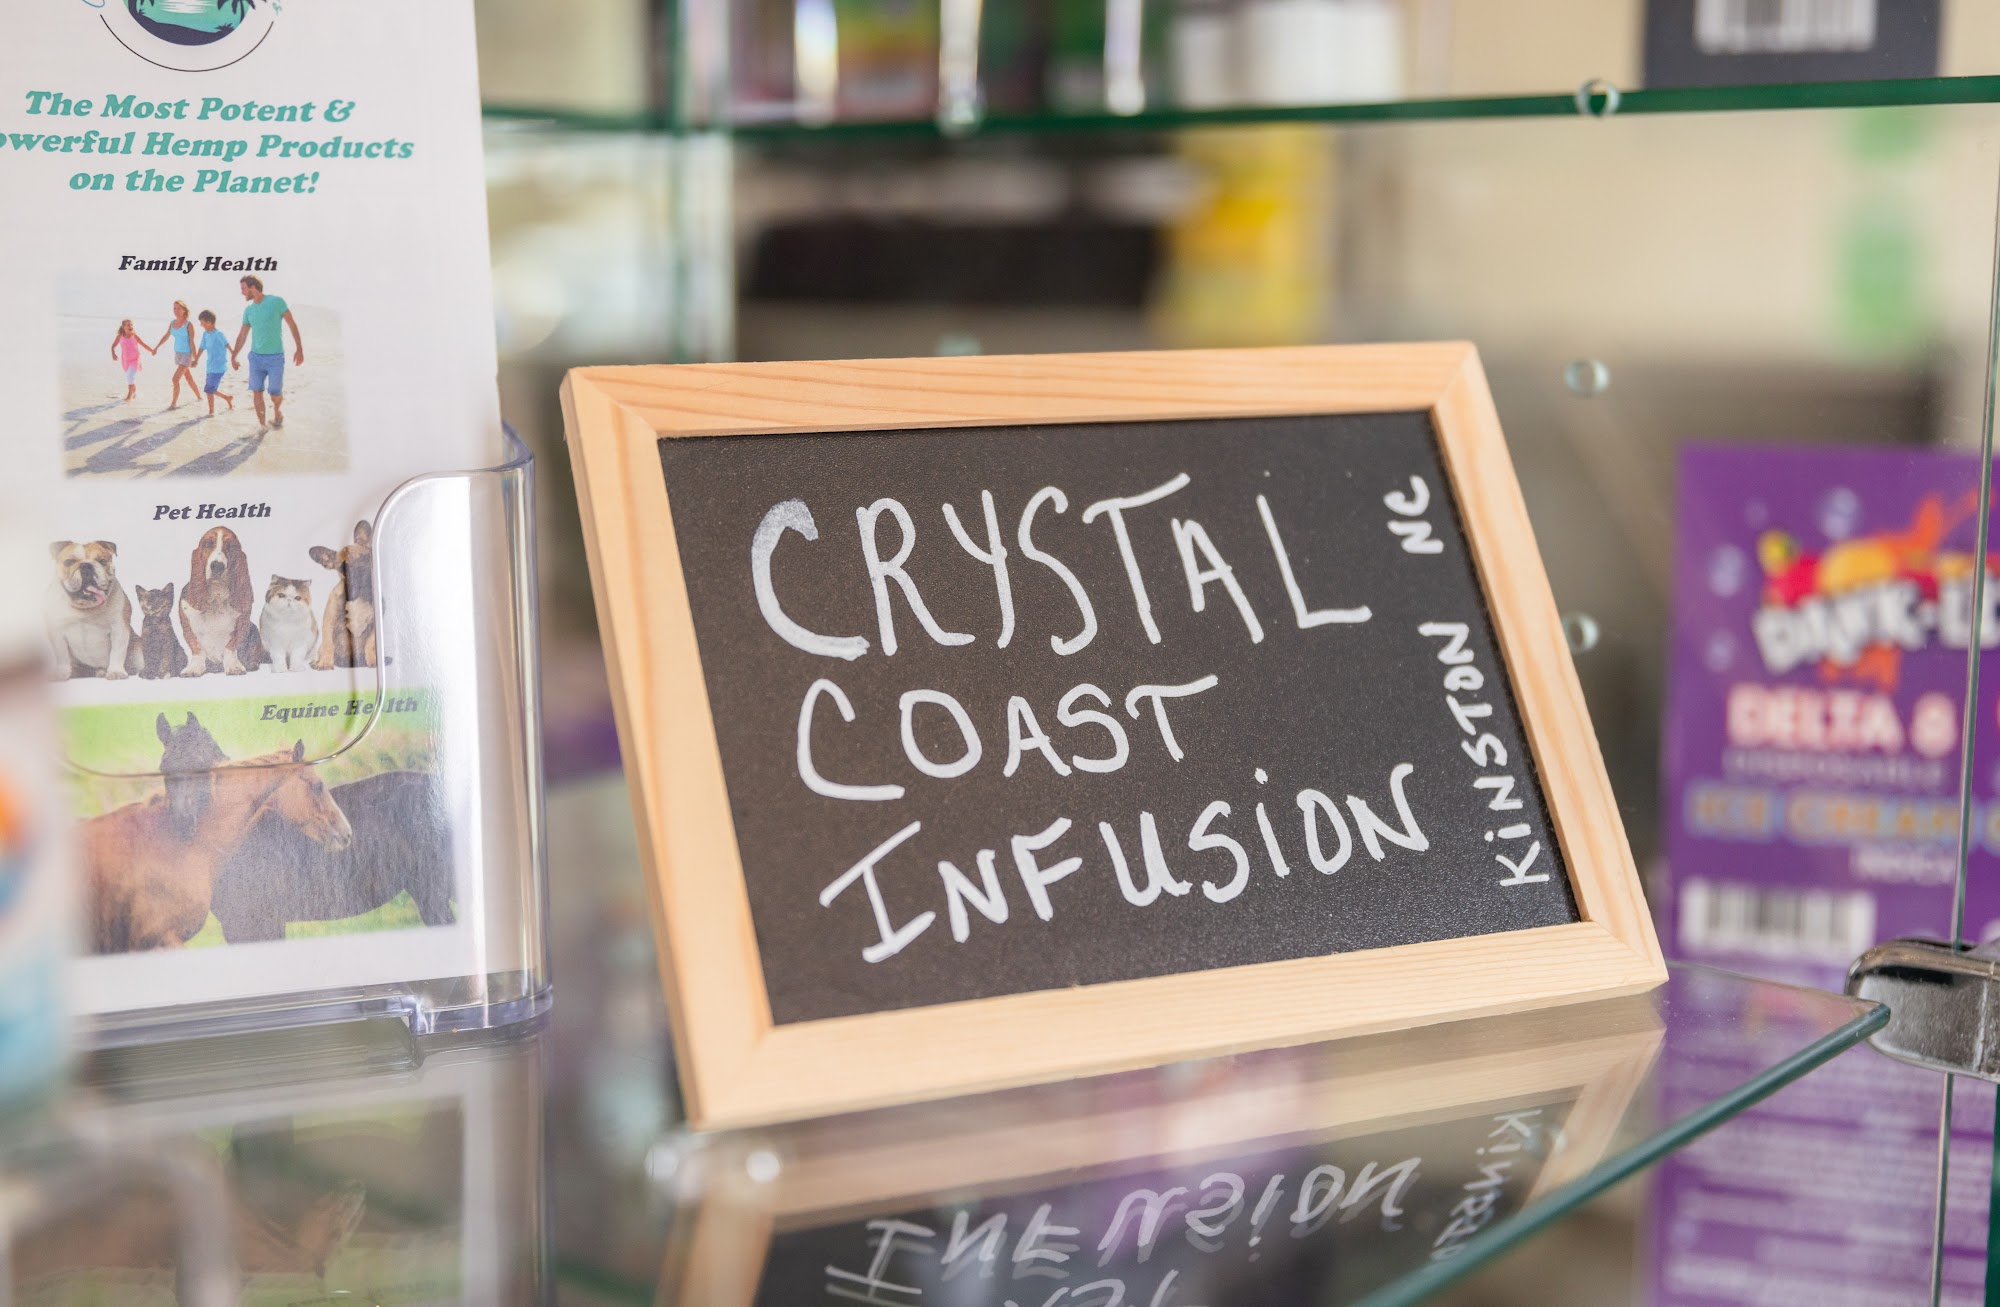 The Most Potent &
Powerful Hemp Products
on the Planet!
Family Health
Pet Health
Equine Health
CRYSTAL
COAST
INFUSION
KINSTON NC
DELTA 8
ICE CREAM